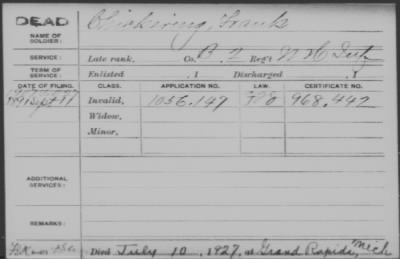 DEAD
NAME OF SOLDIER:
Chickering, Frank
SERVICE:
Late rank, Co. B 2 Reg't N H Inf
TERM OF SERVICE:
Enlisted , 1 Discharged , 1
DATE OF FILING. CLASS. APPLICATION NO. LAW. CERTIFICATE NO.
1891 Sept 11 Invalid, 1056.147 968.442
Widow,
Minor,
ADDITIONAL SERVICES:
REMARKS:
Died July 10, 1927, at Grand Rapids, Mich